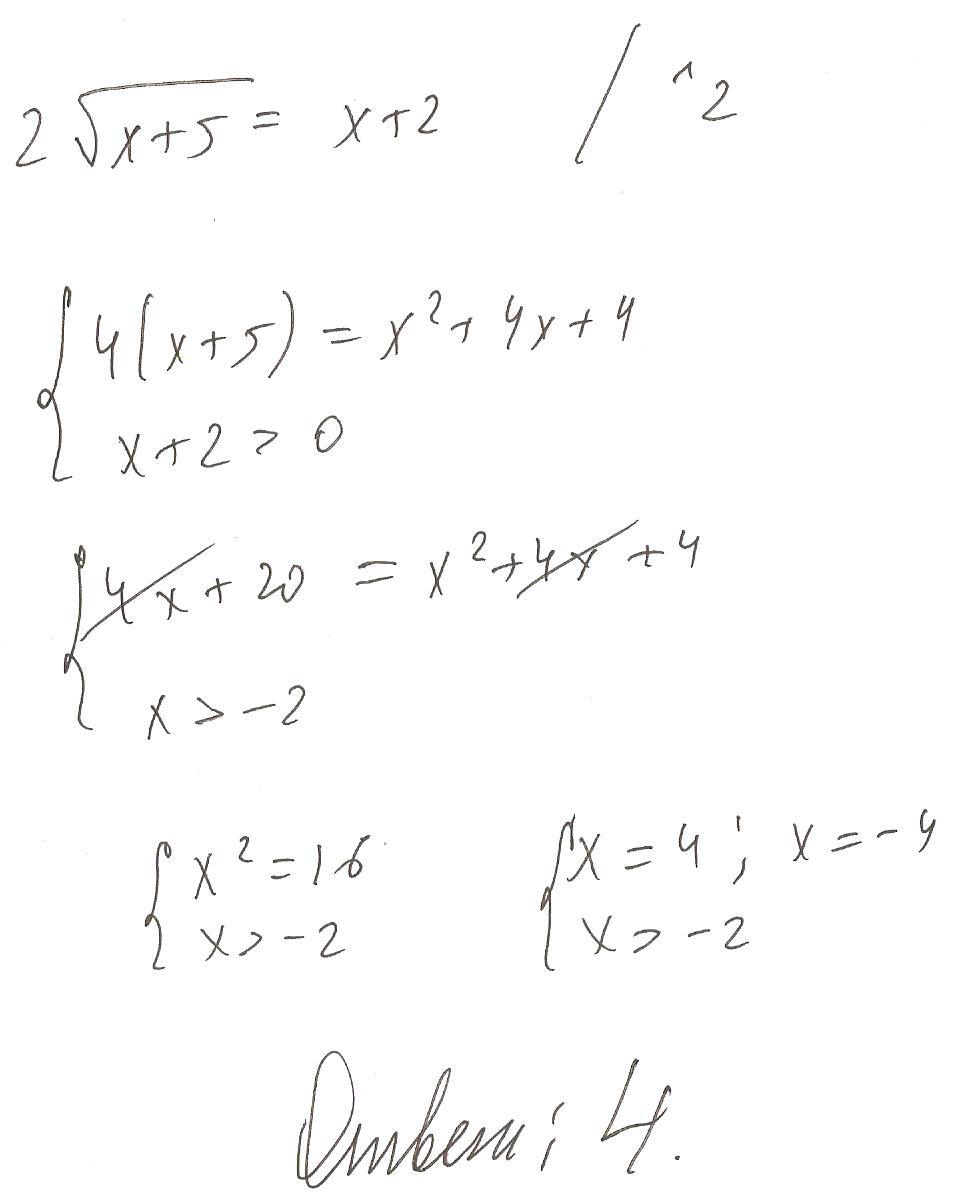 2√(x+5) = x+2 / ^2
{ 4(x+5) = x²+4x+4
x+2 > 0
{ 4x+20 = x²+4x+4
x > -2
{ x²=16 { x = 4; x = -4
x > -2 x > -2
Ответ: 4.